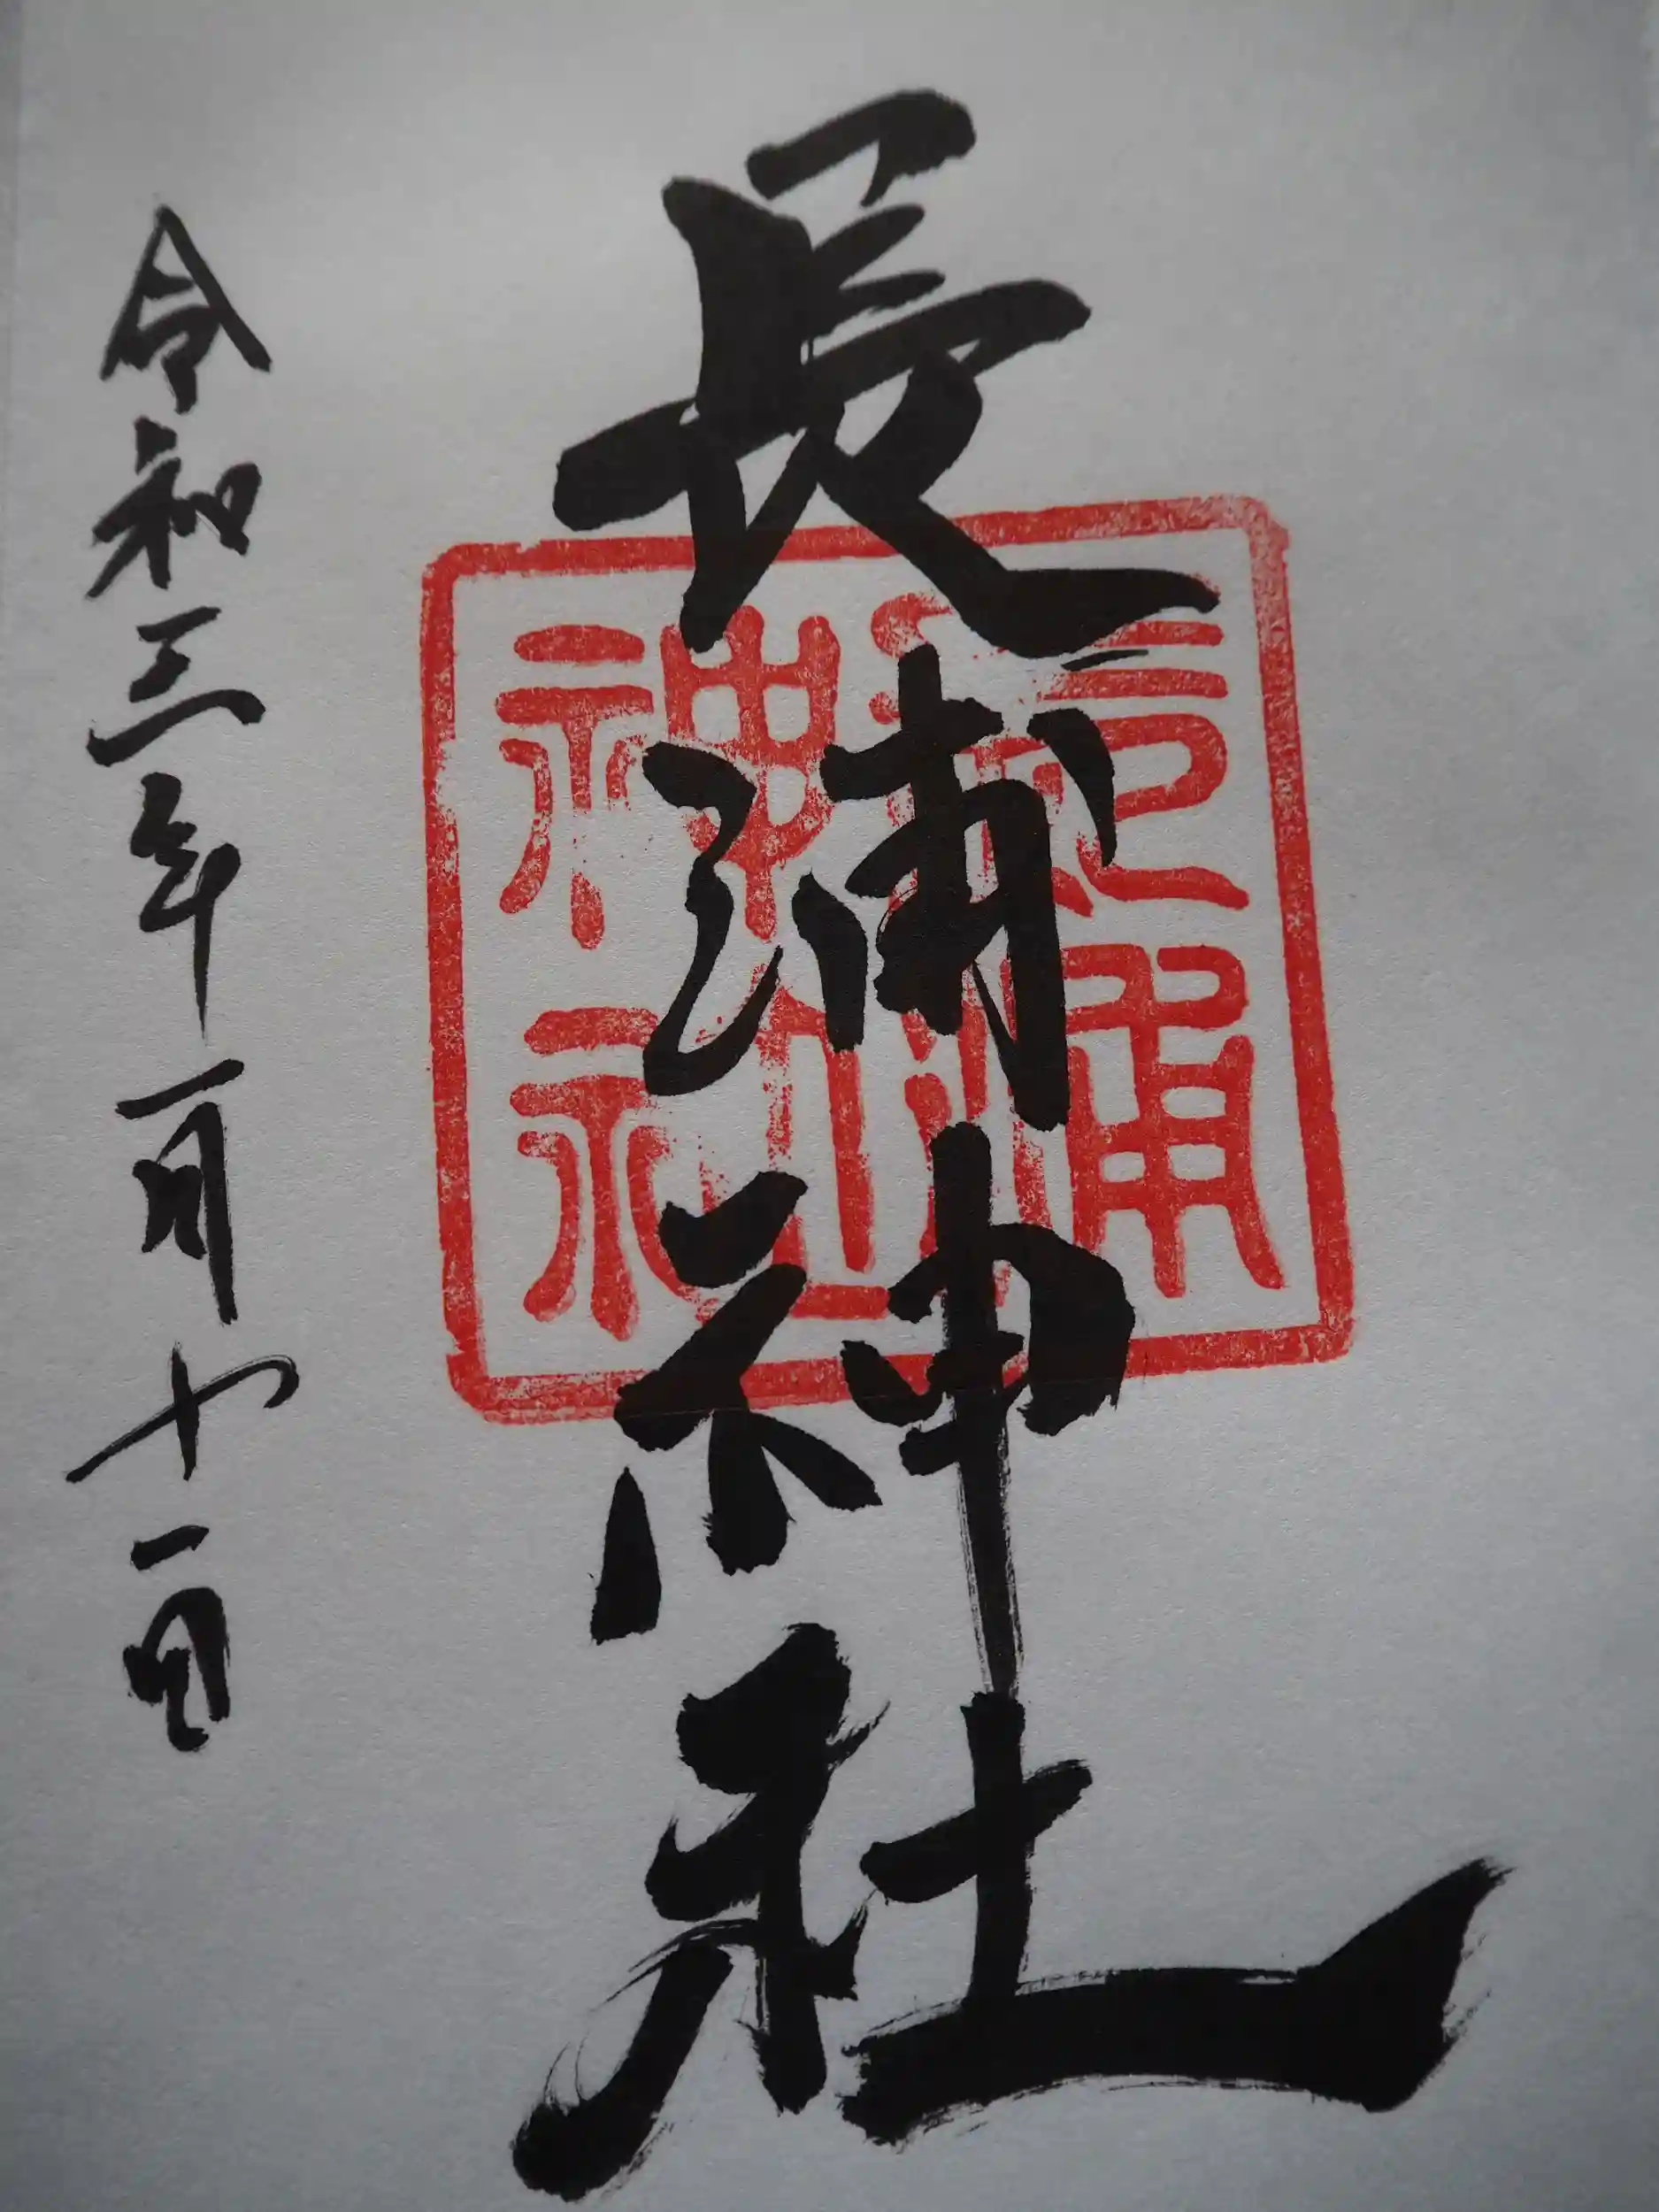 長浦神社
長浦神社
令和三年一月十一日